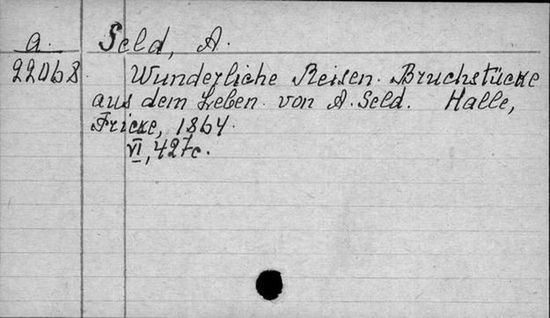 a. Seld, A.
22068. Wunderliche Reisen. Bruchstücke
aus dem Leben von A. Seld. Halle,
Fricke, 1864.
VI, 427c.